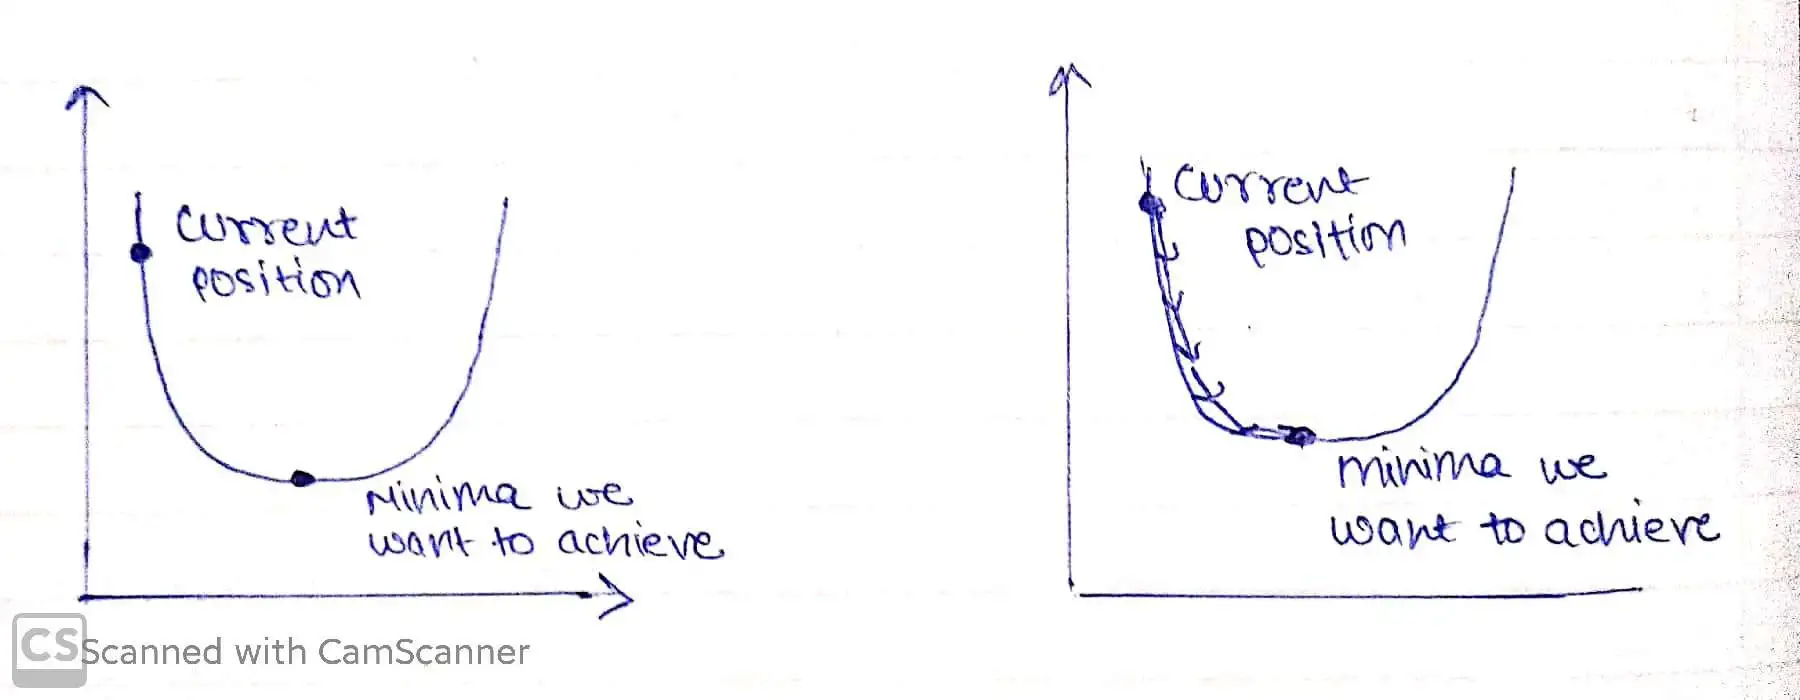 Current
position
Minima we
want to achieve
Current
position
minima we
want to achieve
CS Scanned with CamScanner